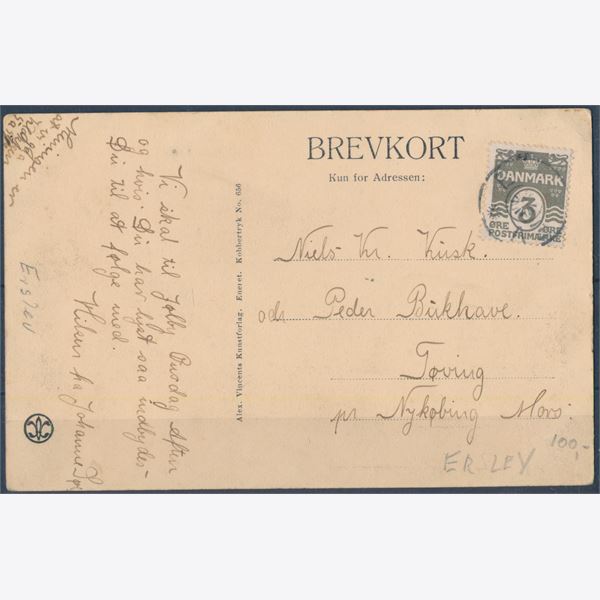 BREVKORT
Kun for Adressen:
DANMARK
3
ØRE ØRE
POSTFRIMÆRKE
Niels Kr. Kusk.
adr Peder Bukhave.
Tøving
pr Nykøbing Mors.
ERSLEV
100,-
Alex. Vincents Kunstforlag. Eneret. Kobbertryk No. 656
Vi skal til Jølby Onsdag Aften
og hvis Du har lyst saa indbydes
Du til at følge med.
Hilsen fra Johanne
Erslev